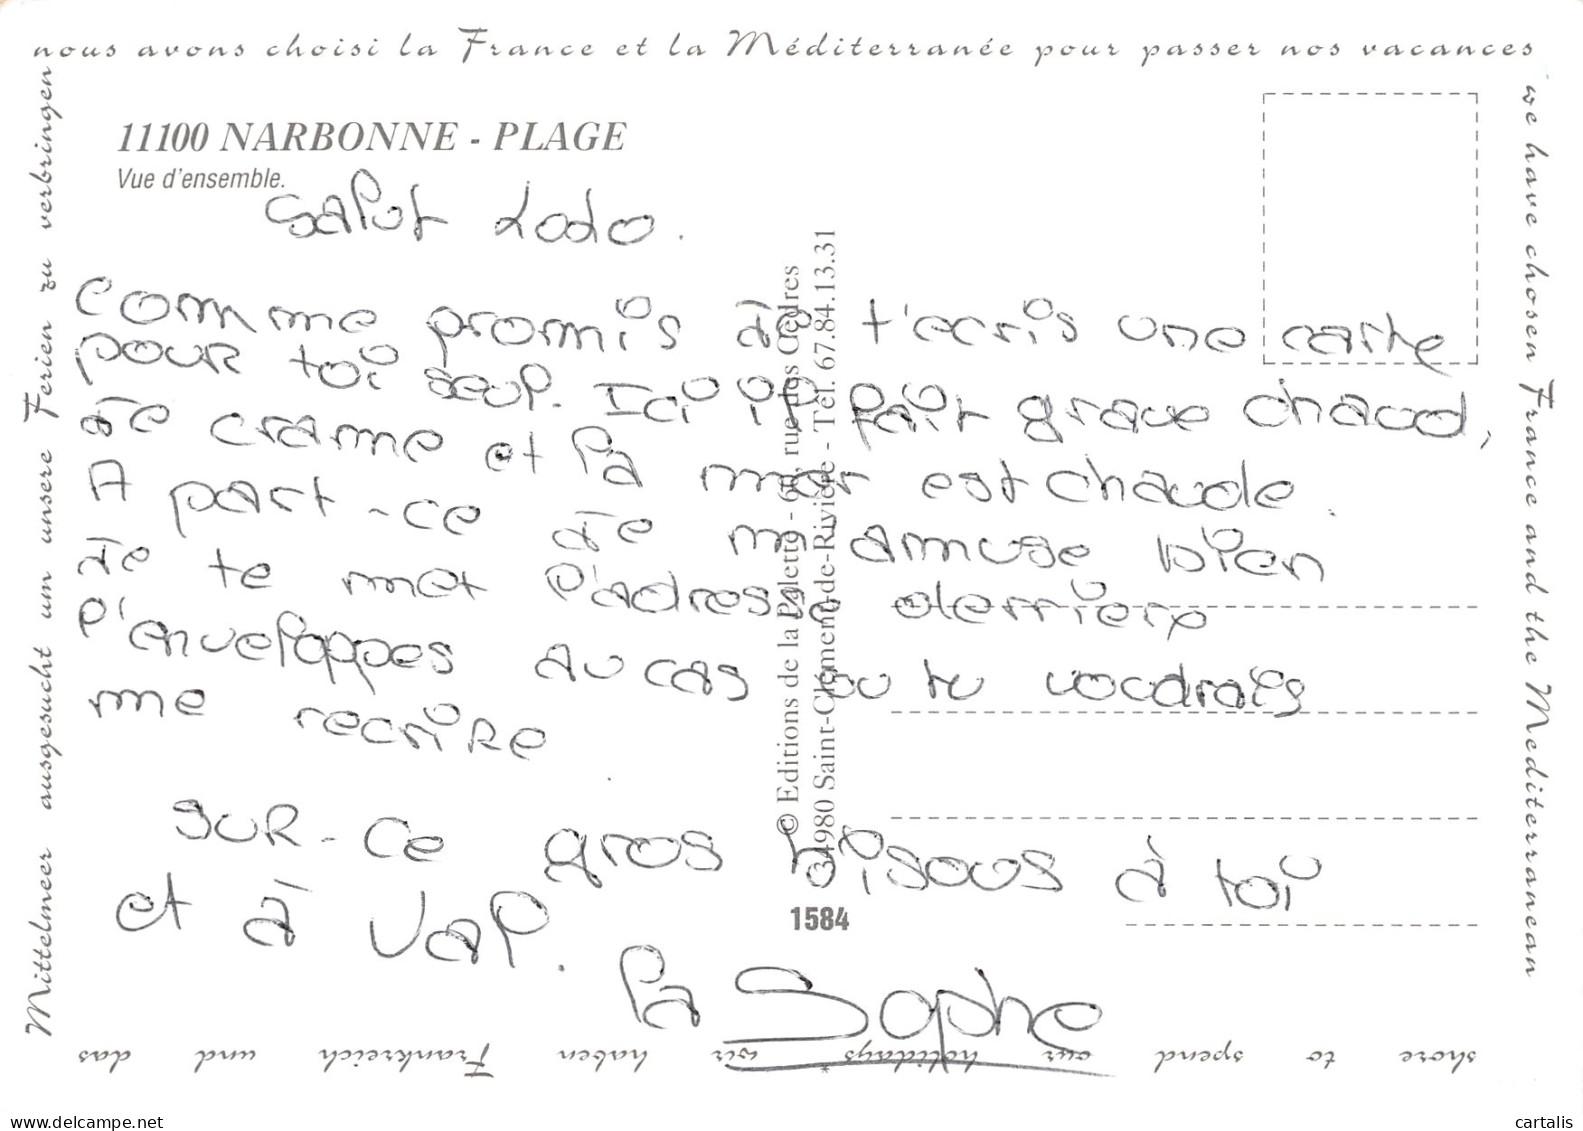 nous avons choisi la France et la Méditerranée pour passer nos vacances
we have chosen France and the Mediterranean
shore to spend our holidays * wir haben Frankreich und das
Mittelmeer ausgesucht um unsere Ferien zu verbringen
11100 NARBONNE - PLAGE
Vue d'ensemble.
Salut Lodo.
Comme promis je t'ecris une carte
pour toi seul. Ici il fait grave chaud,
Je crame et la mer est chaude.
A part-ce je m amuse bien
Je te met l'adresse derriere
l'enveloppes au cas ou tu voudrais
me recrire
Sur-ce gros bisous à toi
et à Val.
la Sophe
© Editions de la Palette - 60, rue des Cèdres
34980 Saint-Clément-de-Rivière - Tél. 67.84.13.31
1584
www.delcampe.net
cartalis